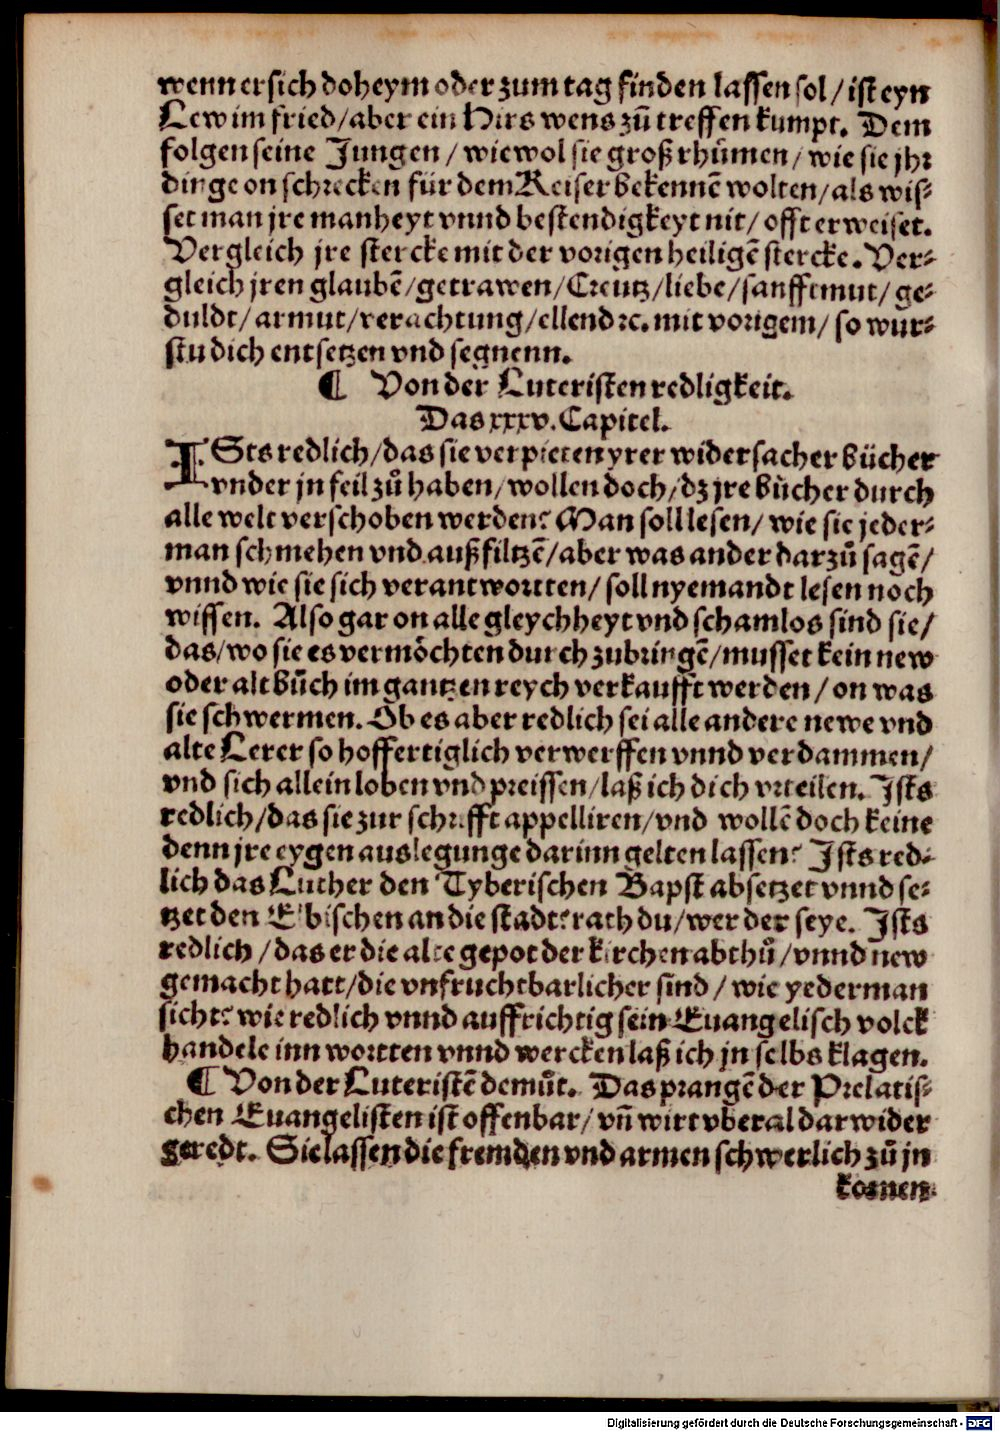 wenn er sich doheym oder zum tag finden lassen sol / ist eyn
Lew im fried / aber ein Hirs wens zů treffen kumpt. Dem
folgen seine Jungen / wiewol sie groß rhůmen / wie sie jhr
dinge on schrecken für dem Keiser bekennē wolten / als wis⸗
set man jre manheyt vnnd bestendigkeyt nit / offt erweiset.
Vergleich jre stercke mit der vorigen heiligē stercke. Ver⸗
gleich jren glaubē / getrawen / Creutz / liebe / sanfftmut / ge⸗
duldt / armut / verachtung / ellend ꝛc. mit vorigem / so wur⸗
stu dich entsetzen vnd segnenn.
¶ Von der Luteristen redligkeit.
Das xxxv. Capitel.
ISts redlich / das sie verpieten yrer widersacher bücher
vnder jn feil zů haben / wollen doch / dz jre bücher durch
alle welt verschoben werden? Man soll lesen / wie sie jeder⸗
man schmehen vnd außfiltzē / aber was ander darzů sagē /
vnnd wie sie sich verantwortten / soll nyemandt lesen noch
wissen. Also gar on alle gleychheyt vnd schamlos sind sie /
das / wo sie es vermöchten durch zubringē / musset kein new
oder alt bůch im gantzen reych verkaufft werden / on was
sie schwermen. Ob es aber redlich sei alle andere newe vnd
alte Lerer so hoffertiglich verwerffen vnnd verdammen /
vnd sich allein loben vnd preissen / laß ich dich vrteilen. Ists
redlich / das sie zur schrifft appelliren / vnd wollē doch keine
denn jre eygen auslegunge darinn gelten lassen? Ists red⸗
lich das Luther den Tyberischen Bapst absetzet vnnd se⸗
tzet den Elbischen an die stadt? rath du / wer der seye. Ists
redlich / das er die alte gepot der kirchen abthů / vnnd new
gemacht hatt / die vnfruchtbarlicher sind / wie yederman
sicht? wie redlich vnnd auffrichtig sein Euangelisch volck
handele inn wortten vnnd wercken laß ich jn selbs klagen.
¶ Von der Luteristē demůt. Das prangē der Prelatis⸗
chen Euangelisten ist offenbar / vñ wirt vberal darwider
geredt. Sie lassen die fremden vnd armen schwerlich zů jn
komen
Digitalisierung gefördert durch die Deutsche Forschungsgemeinschaft - DFG